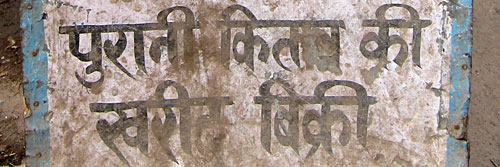 पुरानी किताब की
खरीद बिक्री